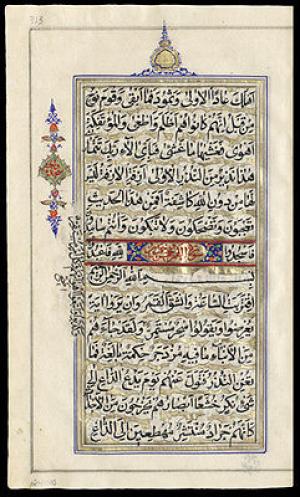 313
اَهْلَكَ عَادًا الْاُولٰى وَثَمُودَ فَمَا اَبْقٰى وَقَوْمَ نُوحٍ
مِنْ قَبْلُ اِنَّهُمْ كَانُوا هُمْ اَظْلَمَ وَاَطْغٰى وَالْمُؤْتَفِكَةَ
اَهْوٰى فَغَشّٰيهَا مَا غَشّٰى فَبِاَىِّ اٰلَاءِ رَبِّكَ تَتَمَارٰى
هٰذَا نَذِيرٌ مِنَ النُّذُرِ الْاُولٰى اَزِفَتِ الْاٰزِفَةُ لَيْسَ
لَهَا مِنْ دُونِ اللّٰهِ كَاشِفَةٌ اَفَمِنْ هٰذَا الْحَدِيثِ
تَعْجَبُونَ وَتَضْحَكُونَ وَلَا تَبْكُونَ وَاَنْتُمْ سَامِدُونَ
بِسْمِ اللّٰهِ الرَّحْمٰنِ الرَّحِيمِ
اِقْتَرَبَتِ السَّاعَةُ وَانْشَقَّ الْقَمَرُ وَاِنْ يَرَوْا اٰيَةً
يُعْرِضُوا وَيَقُولُوا سِحْرٌ مُسْتَمِرٌّ وَلَقَدْ جَاءَهُمْ
مِنَ الْاَنْبَاءِ مَا فِيهِ مُزْدَجَرٌ حِكْمَةٌ بَالِغَةٌ فَمَا
تُغْنِ النُّذُرُ فَتَوَلَّ عَنْهُمْ يَوْمَ يَدْعُ الدَّاعِ اِلٰى
شَىْءٍ نُكُرٍ خُشَّعًا اَبْصَارُهُمْ يَخْرُجُونَ مِنَ الْاَجْدَاثِ
كَاَنَّهُمْ جَرَادٌ مُنْتَشِرٌ مُهْطِعِينَ اِلَى الدَّاعِ